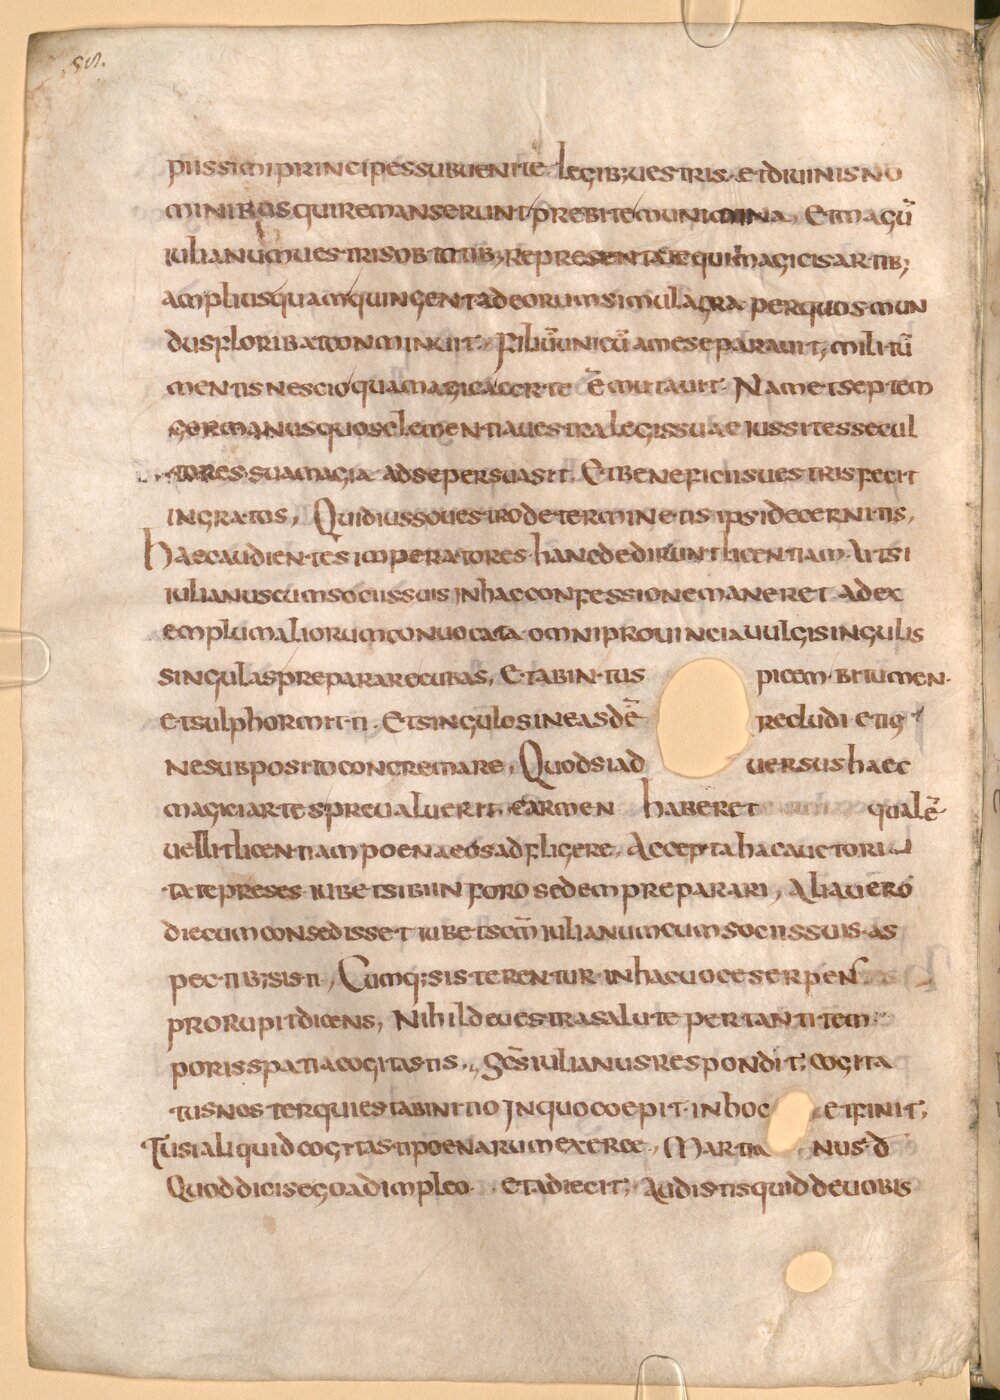 58.
piissimi principes subuenite legib; uestris. et diuinis no
minibus qui remanserunt prebite munimina. Et magū
iulianum uestris obtutib; representate qui magicis artib;
amplius quam quingenta deorum simulacra per quos mun
dus floribat comminuit. Filiū unicū a me separauit, militū
mentis nescio qua magica arte ē mutauit. Nam et septem
germanus quos clementia uestra legis suae iussit esse cul
tores sua magia ad se persuasit. Et beneficiis uestris fecit
ingratos, Quid iusso uestro determinetis ipsi decernitis,
Haec audientes imperatores hanc dederunt licentiam. Ut si
iulianus cum sociis suis in hac confessione maneret ad ex
emplum aliorum conuocata omni prouincia uulgi singulis
singulas preparare cubas, et ab intus picem. bitumen.
et sulphor mitti. Et singulos in easdē recludi et ig
ne subposito concremare, Quod si aduersus haec
magici artes preualuerit. carmen haberet qualē
uellit licentiam poena eos adfligere, Accepta hac auctori
tate preses iubet sibi in foro sedem preparari, Alia uero
die cum consedisset iubet scm̄ iulianum cum sociis suis as
pectib; sisti, Cumq; sisterentur in hac uoce serpens
prorupit dicens, Nihil de uestra salute per tanti tem
poris spatia cogitastis., Scs̄ iulianus respondit; cogita
tus noster quies tab initio in quo coepit in hoc et finit;
Tu si aliquid cogitasti poenarum exerce, Martianus d̄
Quod dicis ego adimpleo. et adiecit; Audistis quid de uobis